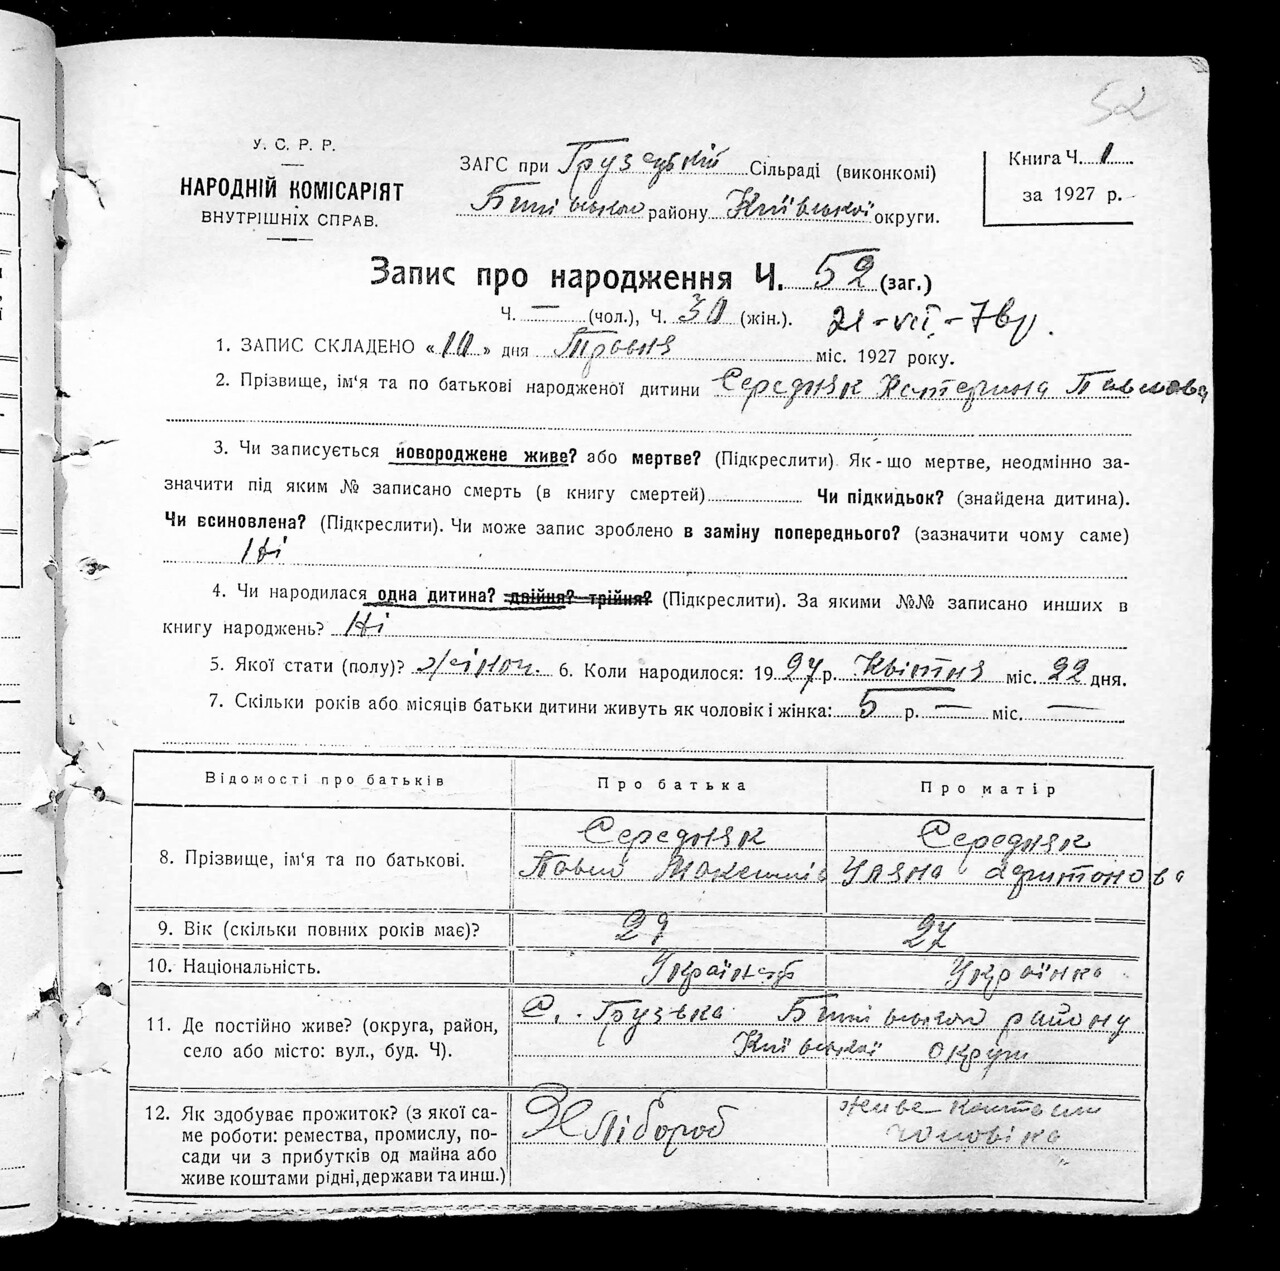 52
У. С. Р. Р.
НАРОДНІЙ КОМІСАРІЯТ
ВНУТРІШНІХ СПРАВ.
ЗАГС при Грузецькій Сільраді (виконкомі)
району Київської округи.
Книга Ч. 1
за 1927 р.
Запис про народження Ч. 52 (заг.)
Ч. — (чол.), Ч. 30 (жін.). 21-VII-7
1. ЗАПИС СКЛАДЕНО «10» дня Травня міс. 1927 року.
2. Прізвище, ім'я та по батькові народженої дитини Середняк Катерина Павлова
3. Чи записується новороджене живе? або мертве? (Підкреслити). Як-що мертве, неодмінно за-
значити під яким № записано смерть (в книгу смертей) Чи підкидьок? (знайдена дитина).
Чи всиновлена? (Підкреслити). Чи може запис зроблено в заміну попереднього? (зазначити чому саме)
Ні
4. Чи народилася одна дитина? двійня? трійня? (Підкреслити). За якими №№ записано инших в
книгу народжень? Ні
5. Якої стати (полу)? жіноч. 6. Коли народилося: 1927 р. Квітня міс. 22 дня.
7. Скільки років або місяців батьки дитини живуть як чоловік і жінка: 5 р. — міс. —
Відомості про батьків Про батька Про матір
8. Прізвище, ім'я та по батькові.
Середняк Середняк
Павло Максимів Уляна
9. Вік (скільки повних років має)? 27 27
10. Національність. Українець Українка
11. Де постійно живе? (округа, район,
село або місто: вул., буд. Ч).
С. Грузька району
Київської округи
12. Як здобуває прожиток? (з якої са-
ме роботи: ремества, промислу, по-
сади чи з прибутків од майна або
живе коштами рідні, держави та инш.)
Хлібороб
живе коштами
чоловіка